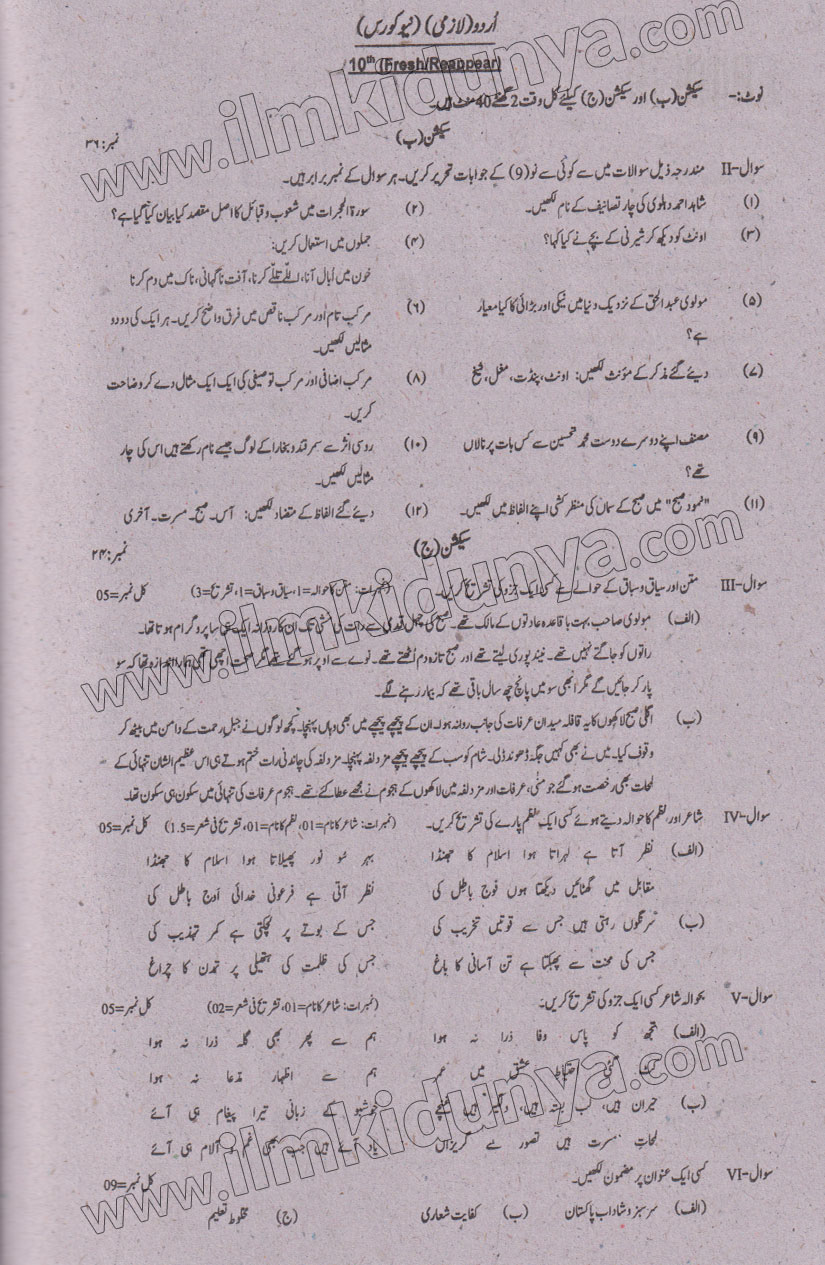 اُردو (لازمی) (نیو کورس)
10th (Fresh/Reappear)
نوٹ:- سیکشن (ب) اور سیکشن (ج) کیلئے کل وقت 2 گھنٹے 40 منٹ ہیں۔
سیکشن (ب) نمبر: ۳۶
سوال-II مندرجہ ذیل سوالات میں سے کوئی سے نو (9) کے جوابات تحریر کریں۔ ہر سوال کے نمبر برابر ہیں۔
(۱) شاہد احمد دہلوی کی چار تصانیف کے نام لکھیں۔ (۲) سورۃ الحجرات میں شعوب و قبائل کا اصل مقصد کیا بیان کیا گیا ہے؟
(۳) اونٹ کو دیکھ کر شیرنی کے بچے نے کیا کہا؟ (۴) جملوں میں استعمال کریں:
خون میں اُبال آنا، اللّے تللّے کرنا، آفت ناگہانی، ناک میں دم کرنا
(۵) مولوی عبدالحق کے نزدیک دنیا میں نیکی اور بڑائی کا کیا معیار (۶) مرکب تام اور مرکب ناقص میں فرق واضح کریں۔ ہر ایک کی دو دو
ہے؟ مثالیں لکھیں۔
(۷) دیئے گئے مذکر کے مؤنث لکھیں: اونٹ، پنڈت، مغل، شیخ (۸) مرکب اضافی اور مرکب توصیفی کی ایک ایک مثال دے کر وضاحت
کریں۔
(۹) مصنف اپنے دوسرے دوست محمد تحسین سے کس بات پر نالاں (۱۰) روسی اثر سے سمرقند و بخارا کے لوگ جیسے نام رکھتے ہیں اس کی چار
تھے؟ مثالیں لکھیں۔
(۱۱) "نمود صبح" میں صبح کے سماں کی منظر کشی اپنے الفاظ میں لکھیں۔ (۱۲) دیئے گئے الفاظ کے متضاد لکھیں: آس۔ صبح۔ مسرت۔ آخری
سیکشن (ج) نمبر: ۲۴
سوال-III متن اور سیاق و سباق کے حوالے سے کسی ایک جزو کی تشریح کریں۔ (نمبرات: متن کا حوالہ=1، سیاق و سباق=1، تشریح=3) کل نمبر=05
(الف) مولوی صاحب بہت باقاعدہ عادتوں کے مالک تھے۔ صبح کی چہل قدمی سے رات کی گشتی تک ان کا روزانہ ایک ہی سا پروگرام ہوتا تھا۔
راتوں کو جاگتے نہیں تھے۔ نیند پوری لیتے تھے اور صبح تازہ دم اُٹھتے تھے۔ نوے سے اوپر ہو گئے تھے مگر صحت اچھی تھی ہمارا اندازہ تھا کہ سو
پار کر جائیں گے مگر ابھی سو میں پانچ چھ سال باقی تھے کہ بیمار رہنے لگے۔
(ب) اگلی صبح لاکھوں کا یہ قافلہ میدان عرفات کی جانب روانہ ہوا۔ ان کے پیچھے پیچھے میں بھی وہاں پہنچا۔ کچھ لوگوں نے جبل رحمت کے دامن میں بیٹھ کر
وقوف کیا۔ میں نے بھی کہیں جگہ ڈھونڈ ڈلی۔ شام کو سب کے پیچھے پیچھے مزدلفہ پہنچا۔ مزدلفہ کی چاندنی رات ختم ہوتے ہی اس عظیم الشان تنہائی کے
لمحات بھی رخصت ہو گئے جو منیٰ، عرفات اور مزدلفہ میں لاکھوں کے ہجوم نے مجھے عطا کئے تھے۔ ہجوم عرفات کی تنہائی میں سکون ہی سکون تھا۔
سوال-IV شاعر اور نظم کا حوالہ دیتے ہوئے کسی ایک نظم پارے کی تشریح کریں۔ (نمبرات: شاعر کا نام=01، نظم کا نام=01، تشریح فی شعر=1.5) کل نمبر=05
(الف) نظر آتا ہے لہراتا ہوا اسلام کا جھنڈا بہر سُو نور پھیلاتا ہوا اسلام کا جھنڈا
مقابل میں گھٹائیں دیکھتا ہوں فوج باطل کی نظر آتی ہے فرعونی خدائی اوج باطل کی
(ب) سرنگوں رہتی ہیں جس سے قوتیں تخریب کی جس کے بوتے پر لچکتی ہے کمر تہذیب کی
جس کی محنت سے پھبکتا ہے تن آسانی کا باغ جس کی ظلمت کی ہتھیلی پر تمدن کا چراغ
سوال-V بحوالہ شاعر کسی ایک جزو کی تشریح کریں۔ (نمبرات: شاعر کا نام=01، تشریح فی شعر=02) کل نمبر=05
(الف) تجھ کو پاس وفا ذرا نہ ہوا ہم سے پھر بھی گلہ ذرا نہ ہوا
کٹ گئی احتیاط عشق میں عمر ہم سے اظہار مدعا نہ ہوا
(ب) حیران ہیں، لب بستہ ہیں، دلگیر ہیں غنچے خوشبو کے زبانی تیرا پیغام ہی آئے
لمحات مسرت ہیں تصور سے گریزاں یاد آئے ہیں جب بھی غم و آلام ہی آئے
سوال-VI کسی ایک عنوان پر مضمون لکھیں۔ کل نمبر=09
(الف) سرسبز و شاداب پاکستان (ب) کفایت شعاری (ج) مخلوط تعلیم
www.ilmkidunya.com
www.ilmkidunya.com
www.ilmkidunya.com